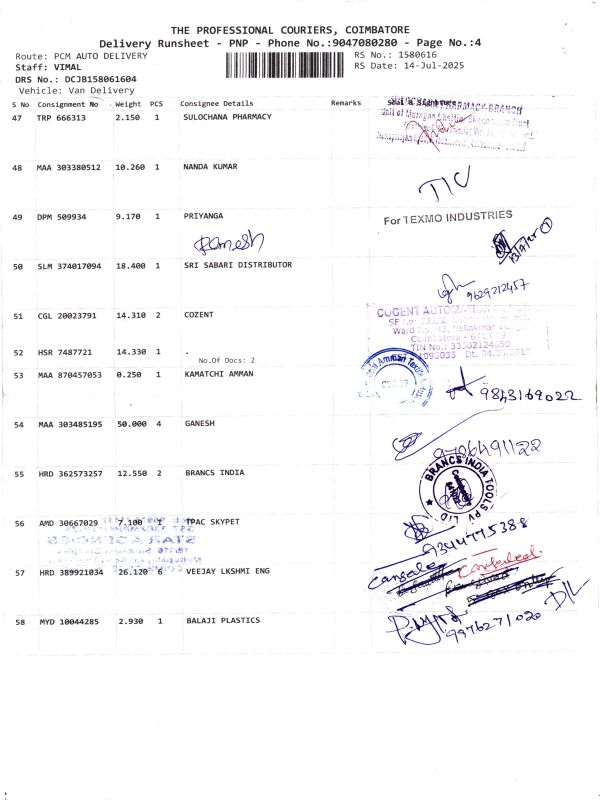 THE PROFESSIONAL COURIERS, COIMBATORE
Delivery Runsheet - PNP - Phone No.:9047080280 - Page No.:4
Route: PCM AUTO DELIVERY
RS No.: 1580616
Staff: VIMAL
RS Date: 14-Jul-2025
DRS No.: DCJB158061604
Vehicle: Van Delivery
S No Consignment No Weight PCS Consignee Details Remarks Seal & Signature
47 TRP 666313 2.150 1 SULOCHANA PHARMACY
48 MAA 303380512 10.260 1 NANDA KUMAR
TIC
49 DPM 509934 9.170 1 PRIYANGA
For TEXMO INDUSTRIES
Ramesh
50 SLM 374017094 18.400 1 SRI SABARI DISTRIBUTOR
9629212457
51 CGL 20023791 14.310 2 COZENT
COGENT AUTOMATION
Ward No. 43, Vellakinar
Coimbatore - 641
52 HSR 7487721 14.330 1 .
No.Of Docs: 2
53 MAA 870457053 0.250 1 KAMATCHI AMMAN
9843169022
54 MAA 303485195 50.000 4 GANESH
55 HRD 362573257 12.550 2 BRANCS INDIA
BRANCS INDIA TOOLS PV LTD
56 AMD 30667029 7.100 1 TPAC SKYPET
9344775388
57 HRD 389921034 26.120 6 VEEJAY LKSHMI ENG
58 MYD 10044285 2.930 1 BALAJI PLASTICS
9976271020